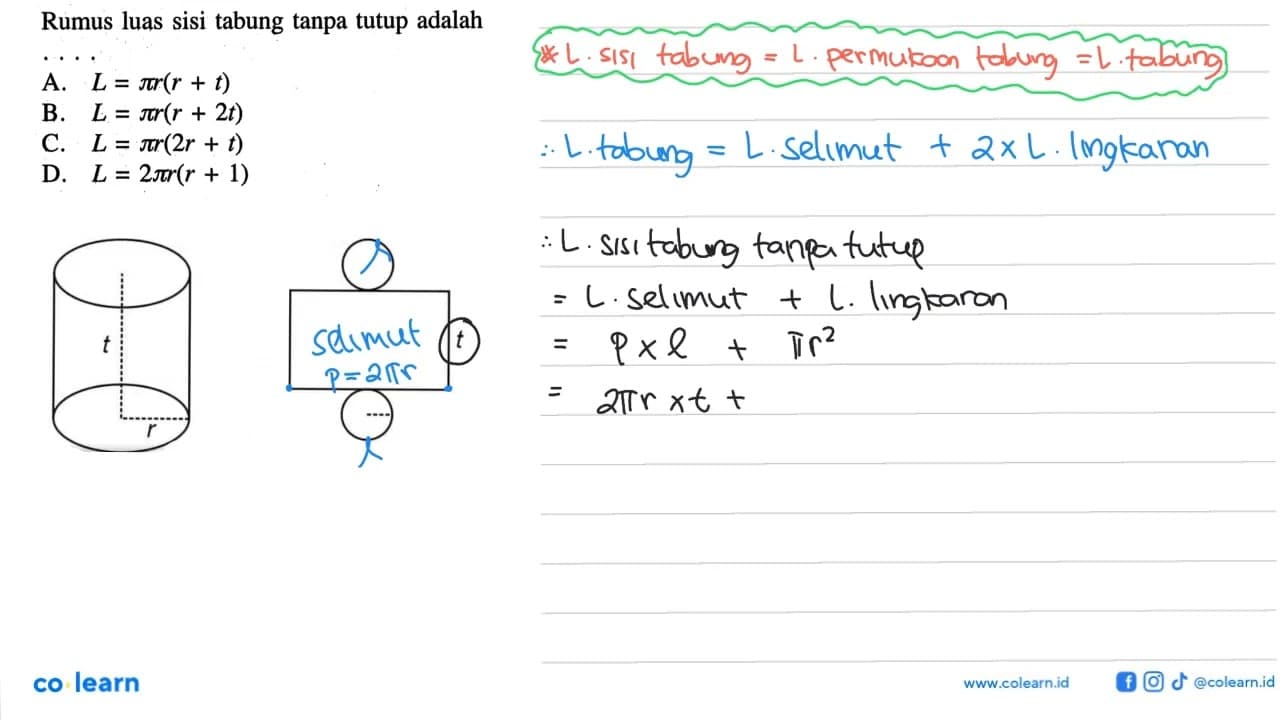 Rumus luas sisi tabung tanpa tutup adalah
. . . .
A. L = πr(r + t)
B. L = πr(r + 2t)
C. L = πr(2r + t)
D. L = 2πr(r + 1)
t
r
selimut
p=2πr
t
* L. sisi tabung = L. permukaan tabung = L. tabung
∴ L. tabung = L. selimut + 2 x L. lingkaran
∴ L. sisi tabung tanpa tutup
= L. selimut + L. lingkaran
= p x l + πr²
= 2πr x t +
co learn
www.colearn.id
@colearn.id